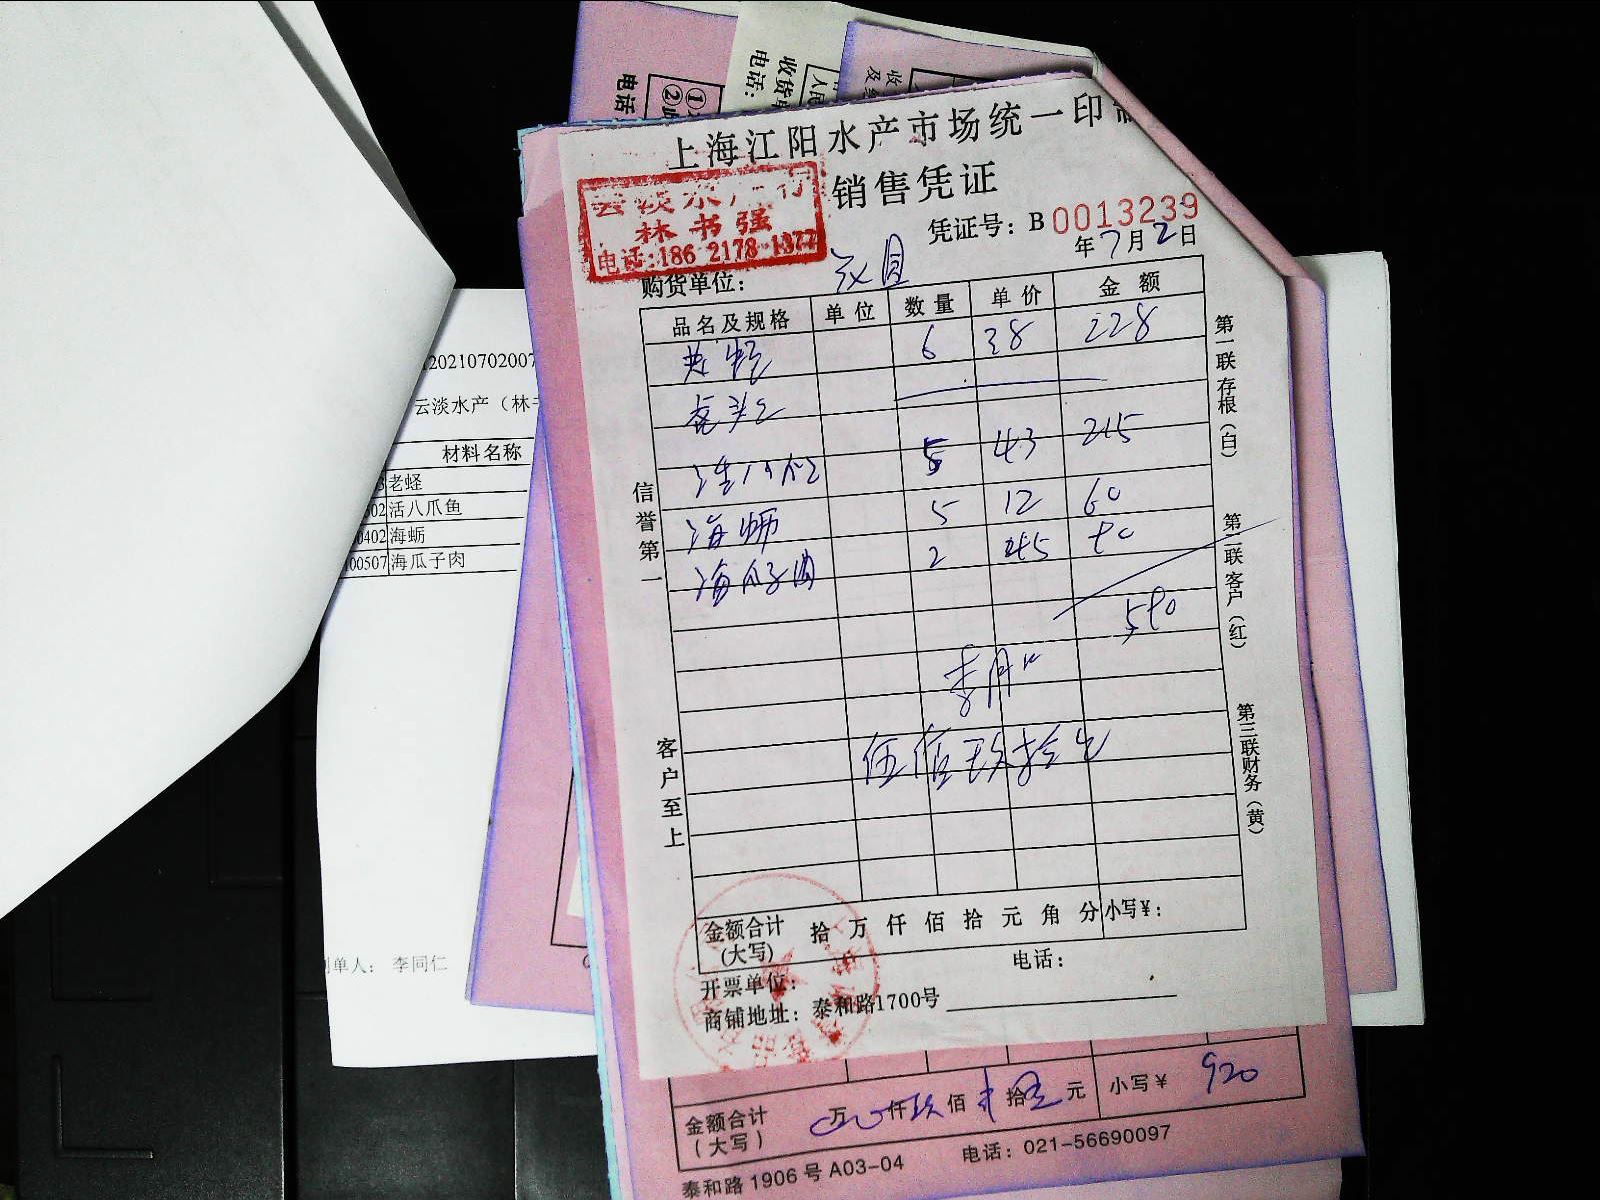 电话
①
②
收货单
电话：
人民
收
及
上海江阳水产市场统一印
销售凭证
云淡水产行
林书强
电话:186 2178 1377
凭证号：B 0013239
年7月2日
购货单位：
品名及规格 单位 数量 单价 金额
老蛏 6 38 228
5 43 215
海蛎 5 12 60
海瓜子肉 2 45 90
590
伍佰玖拾元
信誉第一
客户至上
第一联存根（白）
第二联客户（红）
第三联财务（黄）
金额合计（大写） 拾 万 仟 佰 拾 元 角 分 小写¥：
电话：
开票单位：
商铺地址：泰和路1700号
20210702007
云淡水产（林书
材料名称
老蛏
02 活八爪鱼
0402 海蛎
00507 海瓜子肉
制单人： 李同仁
金额合计（大写） 万 仟玖佰 拾 元 小写¥ 920
泰和路1906号A03-04 电话：021-56690097